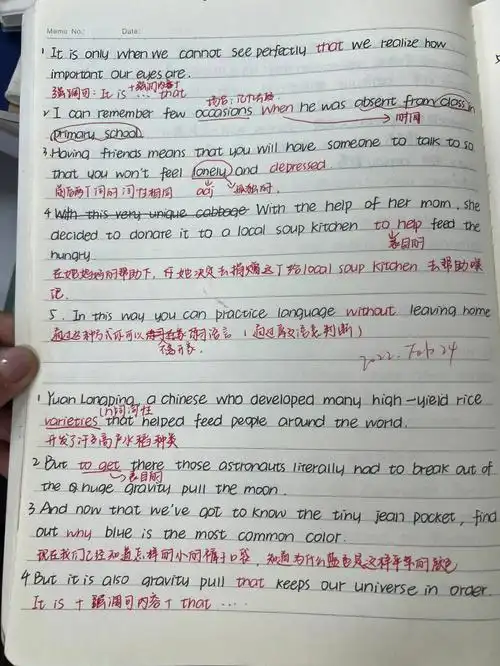 Memo No.: Date:
1 It is only when we cannot see perfectly that we realize how
important our eyes are.
+强调内容+
强调句: It is … that
2 I can remember few occasions when he was absent from class in
primary school. 时间
3 Having friends means that you will have someone to talk to so
that you won't feel lonely and depressed.
adj 孤独的.
4 With this very unique cabbage With the help of her mom, she
decided to donate it to a local soup kitchen to help feed the
hungry. 表目的
在她妈妈的帮助下, 她决定去捐赠这个给local soup kitchen 去帮助
5. In this way you can practice language without leaving home
通过这种方式你可以 练习语言
2022. Feb 24
1 Yuan Longping, a chinese who developed many high-yield rice
varieties that helped feed people around the world.
开发了许多高产水稻种类
2 But to get there those astronauts literally had to break out of
表目的
the huge gravity pull the moon.
3 And now that we've got to know the tiny jean pocket, find
out why blue is the most common color.
现在我们已经知道 小 口袋, 为什么蓝色是 颜色
4 But it is also gravity pull that keeps our universe in order.
It is + 强调句内容 + that ....